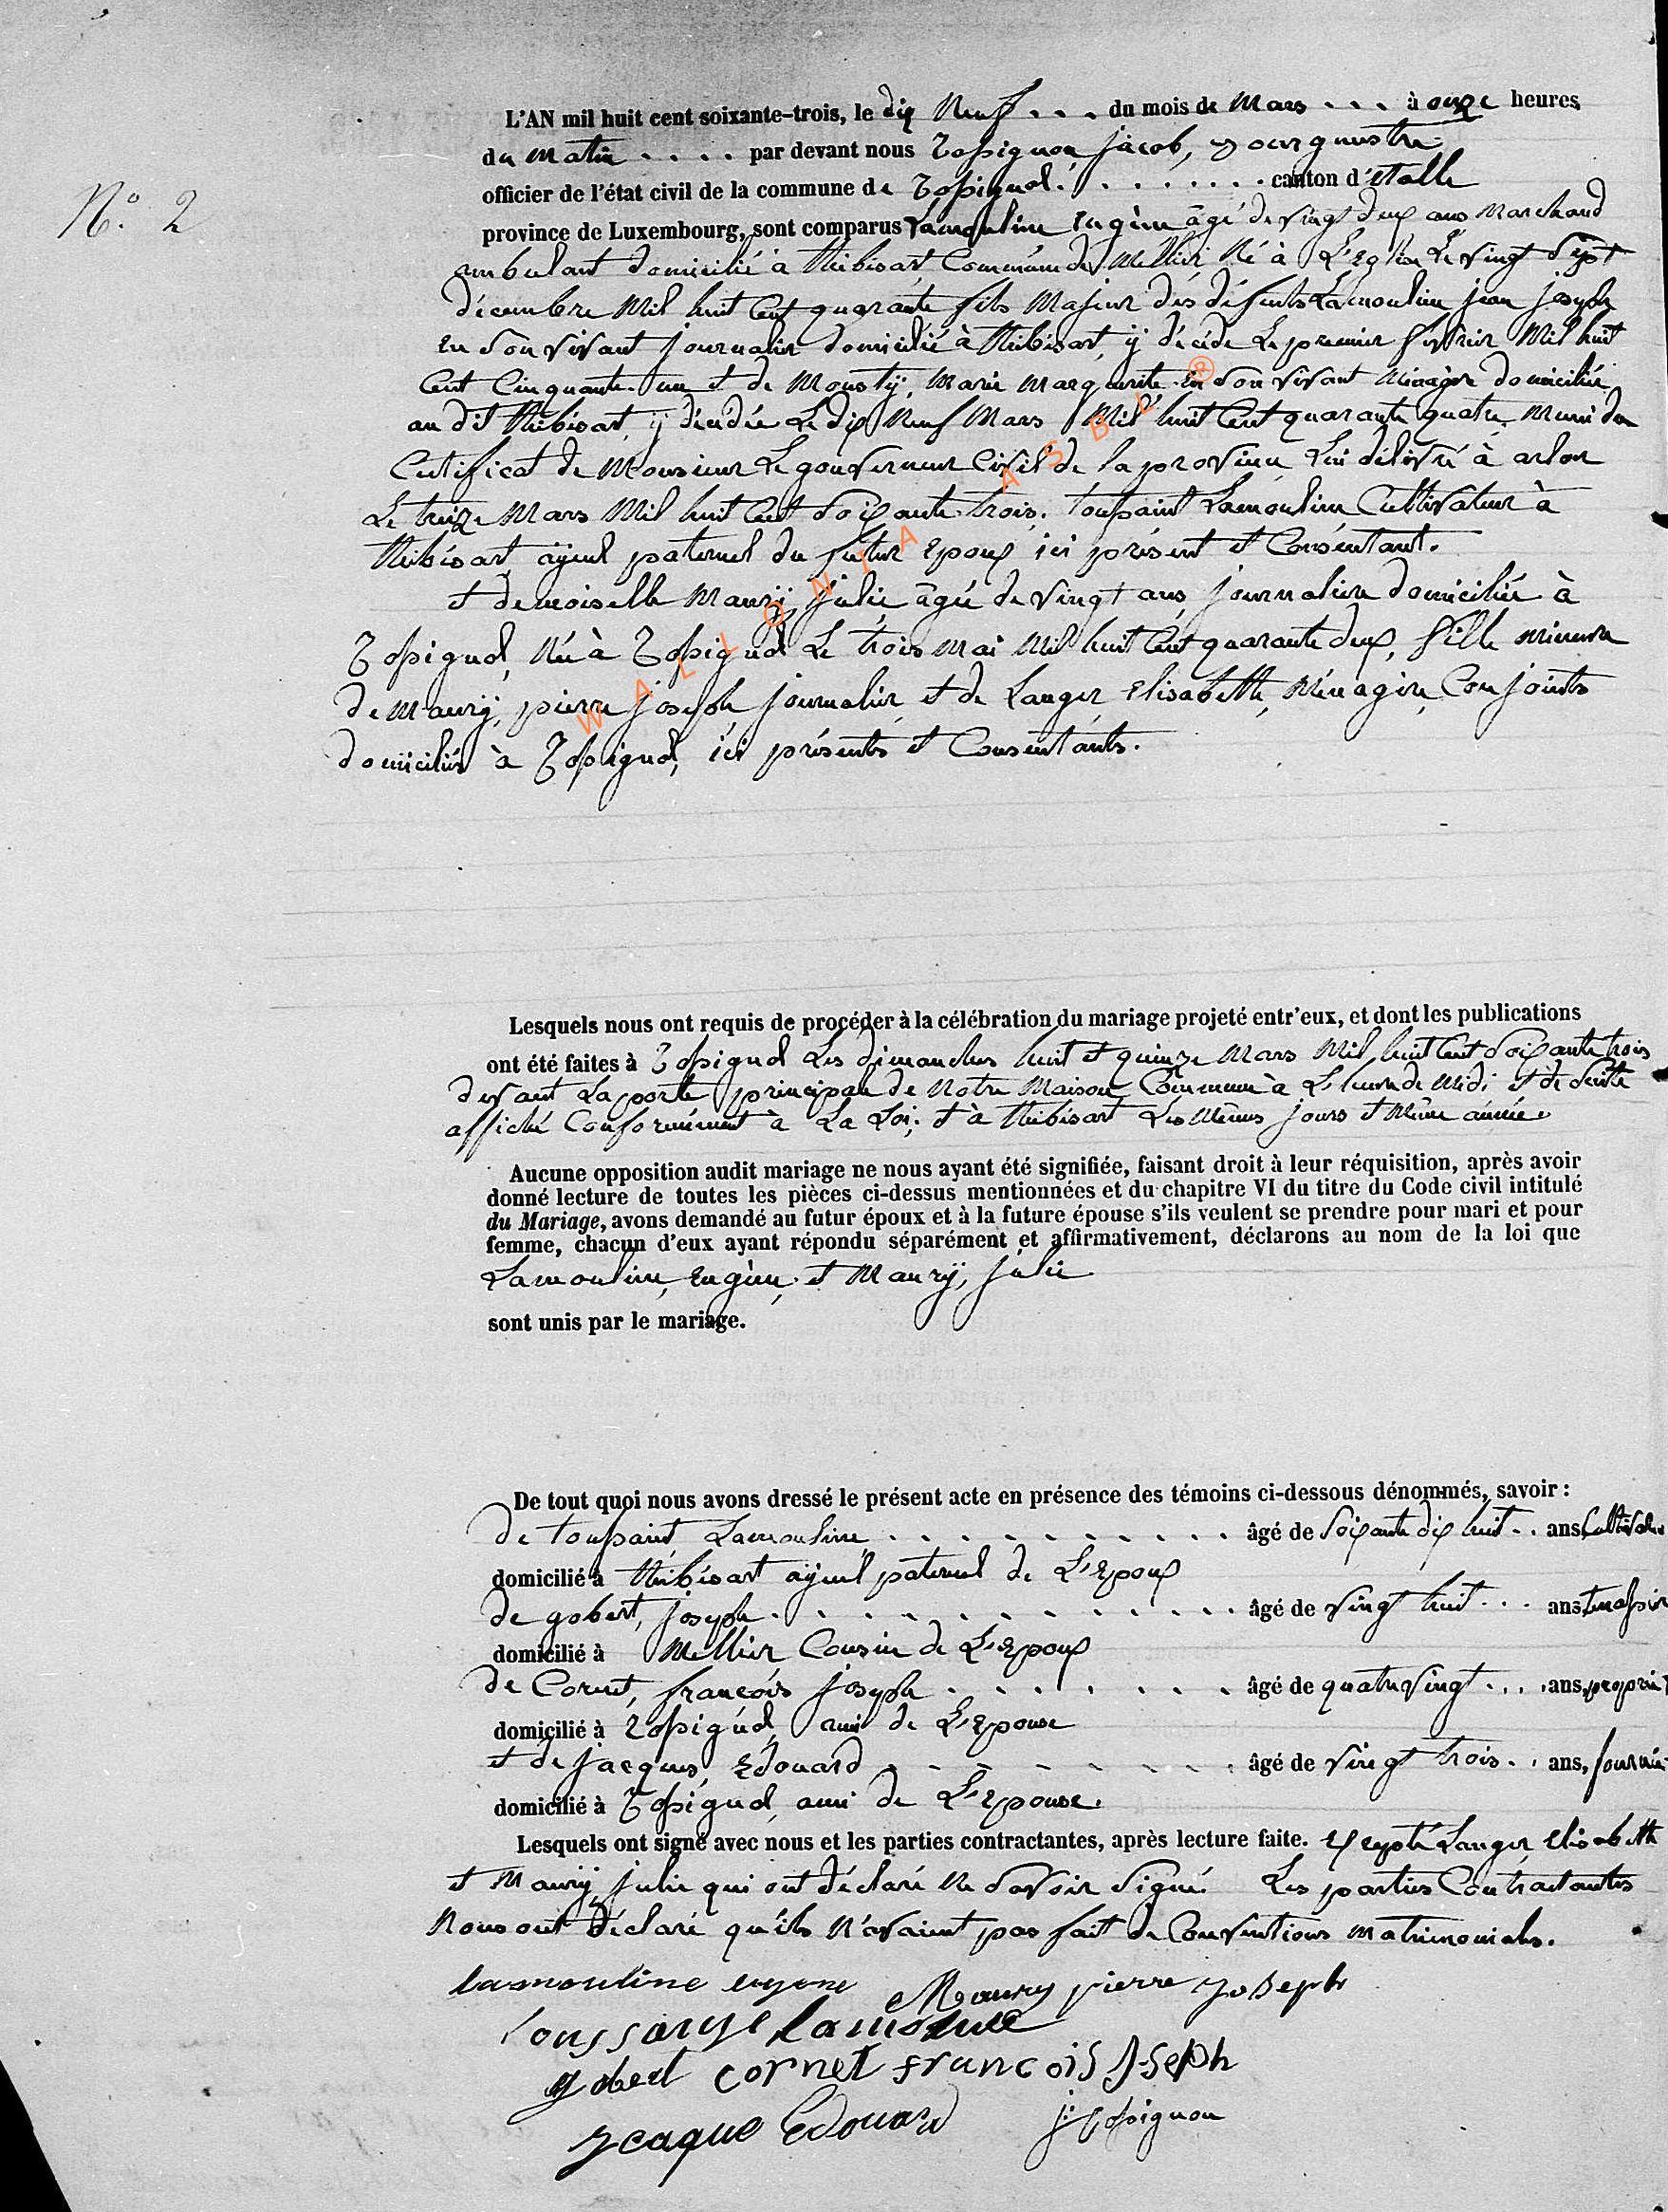 L'AN mil huit cent soixante-trois, le dix Neuf . . . du mois de Mars . . . à onze heures
du Matin . . . . par devant nous Rossignon jacob, Bourgmestre
officier de l'état civil de la commune de Rossignol . . . . . . . . canton d'Etalle
N.o 2
province de Luxembourg, sont comparus Lamouline Eugène âgé de vingt deux ans Marchand
ambulant domicilié à thibésart Commune de Mellier Né à L'Eglise Le vingt Sept
décembre Mil huit Cent quarante fils Majeur des défunts Lamouline jean joseph
En Son vivant journalier domicilié à thibésart, ÿ décédé Le premier fevrier Mil huit
Cent Cinquante-un et de Moustÿ, Marie Marguerite En Son vivant Ménagère domiciliée
au dit thibésart, ÿ décédée Le dix Neuf Mars Mil huit Cent quarante quatre. Muni du
Certificat de Monsieur Le gouverneur Civil de la province Lui délivré à arlon
Le treize Mars Mil huit Cent Soixante-trois. toussaint Lamouline Cultivateur à
thibésart aÿeul paternel du futur Epoux ici présent et Consentant.
et demoiselle Maurÿ, julie âgée de vingt ans, journalière domiciliée à
Rossignol, Née à Rossignol Le trois Mai Mil huit Cent quarante deux, fille mineure
de Maurÿ, pierre joseph journalier, et de Langer Elisabeth, Ménagère, Conjoints
domiciliés à Rossignol, ici présents et Consentants.
WALLONIA ASBL ®
Lesquels nous ont requis de procéder à la célébration du mariage projeté entr'eux, et dont les publications
ont été faites à Rossignol Les dimanches huit et quinze Mars Mil huit Cent Soixante trois
devant La porte principale de Notre Maison Commune à L'heure de Midi et de Suite
affiché Conformément à La Loi; et à thibésart Les Mêmes jours et Même année
Aucune opposition audit mariage ne nous ayant été signifiée, faisant droit à leur réquisition, après avoir
donné lecture de toutes les pièces ci-dessus mentionnées et du chapitre VI du titre du Code civil intitulé
du Mariage, avons demandé au futur époux et à la future épouse s'ils veulent se prendre pour mari et pour
femme, chacun d'eux ayant répondu séparément et affirmativement, déclarons au nom de la loi que
Lamouline, Eugène, et Maurÿ, julie
sont unis par le mariage.
De tout quoi nous avons dressé le présent acte en présence des témoins ci-dessous dénommés, savoir :
de toussaint Lamouline . . . . . . . . . . . âgé de Soixante dix huit . . ans, Cultivateur
domicilié à thibésart aÿeul paternel de L'Epoux
de gobert, joseph . . . . . . . . . . . . âgé de vingt huit . . . ans,
domicilié à Mellier Cousin de L'Epoux
de Cornet, françois joseph . . . . . . . âgé de quatre vingt . . . ans, propriét
domicilié à Rossignol, ami de L'Epouse
et de jacques, Edouard . . . . . . . âgé de vingt trois . . ans, journa
domicilié à Rossignol, ami de L'Epouse.
Lesquels ont signé avec nous et les parties contractantes, après lecture faite. Excepté Langer Elisabeth
et Maurÿ, julie qui ont déclaré Ne Savoir Signé. Les parties Contractantes
Nous ont déclaré qu'ils N'avaient pas fait de Conventions Matrimoniales.
lamouline eugene Maury pierre joseph
toussainje lamouline
gobert cornet francois J-seph
Jcaque Edouard j. Rossignon